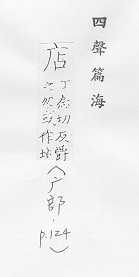 四聲篇海
店
丁念切反爵
之処或作坫
(广部,
p.124)